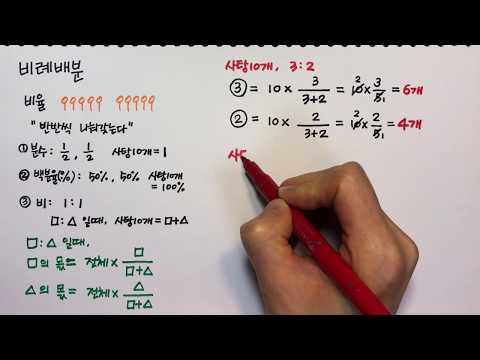 비례배분
비율
"반반씩 나눠갖는다"
① 분수 : 1/2, 1/2 사탕10개 = 1
② 백분율(%) : 50%, 50% 사탕10개 = 100%
③ 비 : 1 : 1
□ : △ 일때, 사탕10개 = □+△
□ : △ 일때,
□의 몫 = 전체 × □/(□+△)
△의 몫 = 전체 × △/(□+△)
사탕10개, 3 : 2
③ = 10 × 3/(3+2) = 10 2 × 3/5 1 = 6개
② = 10 × 2/(3+2) = 10 2 × 2/5 1 = 4개